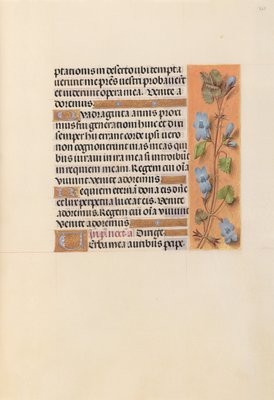 ptationis in deserto ubi tempta
uerunt me p̄res vestri probauer̄t
et uiderunt opera mea. Venite a
doremus.
Quadraginta annis proxi
mus fui generationi huic et dixi
semper hij errant corde ipsi uero
non cognouerunt uias meas qui
bus iuraui in ira mea si introibūt
in requiem meam. Regem cui oīa
viuunt venite adoremus.
Requiem eternā dona eis dn̄e
et lux perpetua luceat eis. Venite
adoremus. Regem cui oīa viuunt
Venite adoremus
Dirige.
Uerba mea auribus perc